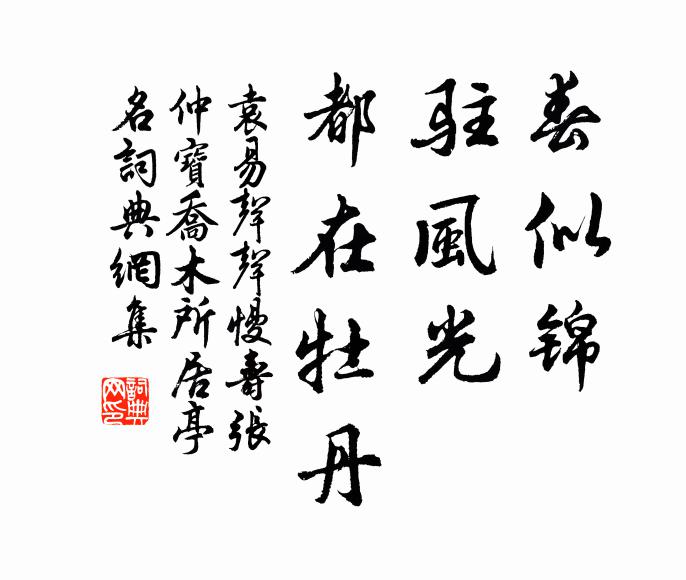 春似锦
駐風光
都在牡丹
袁易聲聲慢壽張
仲寶喬木所居亭
名詞典網集
詞典网印